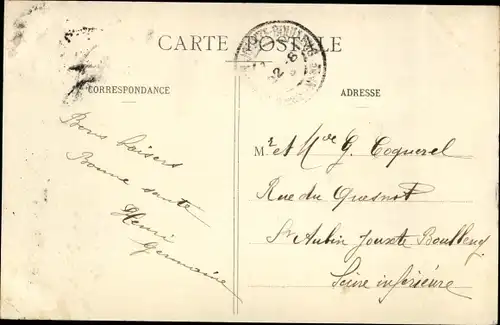 CARTE POSTALE
CORRESPONDANCE
ADRESSE
Bons baisers
Bonne santé
Henri
Germaine
Mr et Mme G. Coquerel
Rue du Quesnot
St Aubin Jouxte Boulleng
Seine inférieure